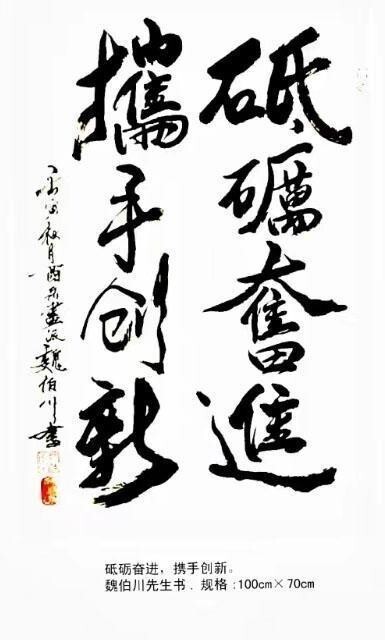 砥礪奮進
攜手创新
寅秋月酉丹畫派魏伯川書
砥砺奋进，携手创新。
魏伯川先生书．规格：100cm×70cm